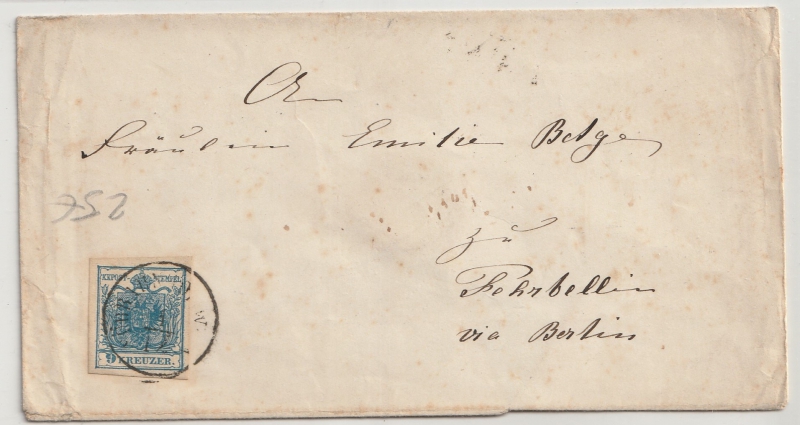 An
Fräulein Emilie Betge
zu
Fehrbellin
via Berlin
752
9 KREUZER.